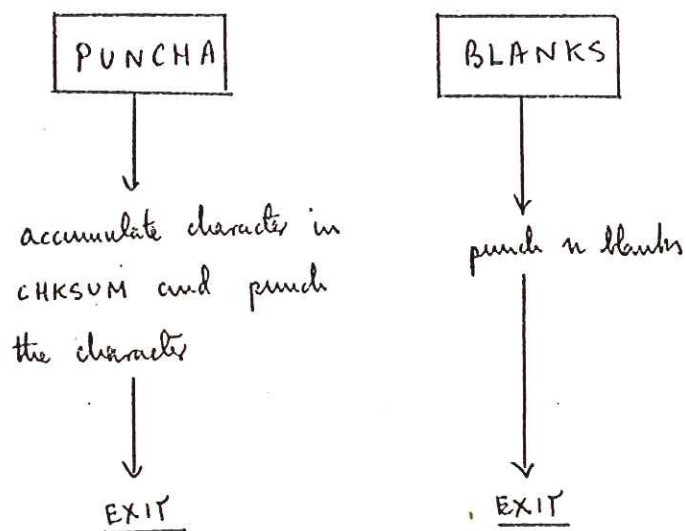 PUNCHA
accumulate character in
CHKSUM and punch
the character
EXIT
BLANKS
punch n blanks
EXIT